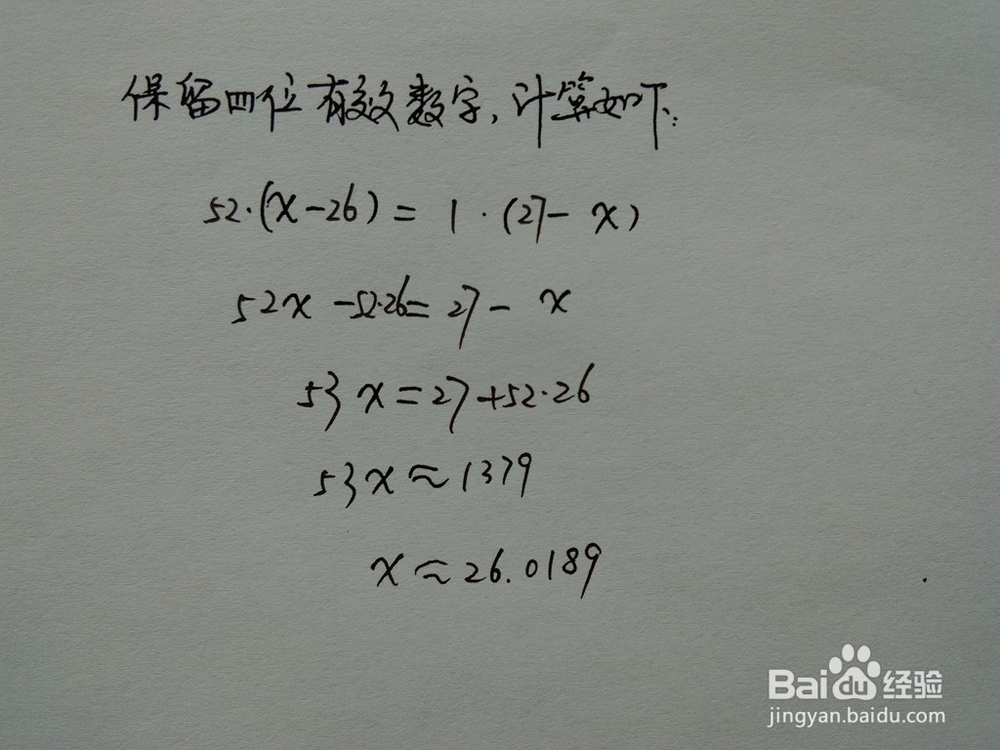 保留四位有效数字,计算如下:
52·(x-26)=1·(27-x)
52x-52·26=27-x
53x=27+52·26
53x≈1379
x≈26.0189
Baidu经验
jingyan.baidu.com